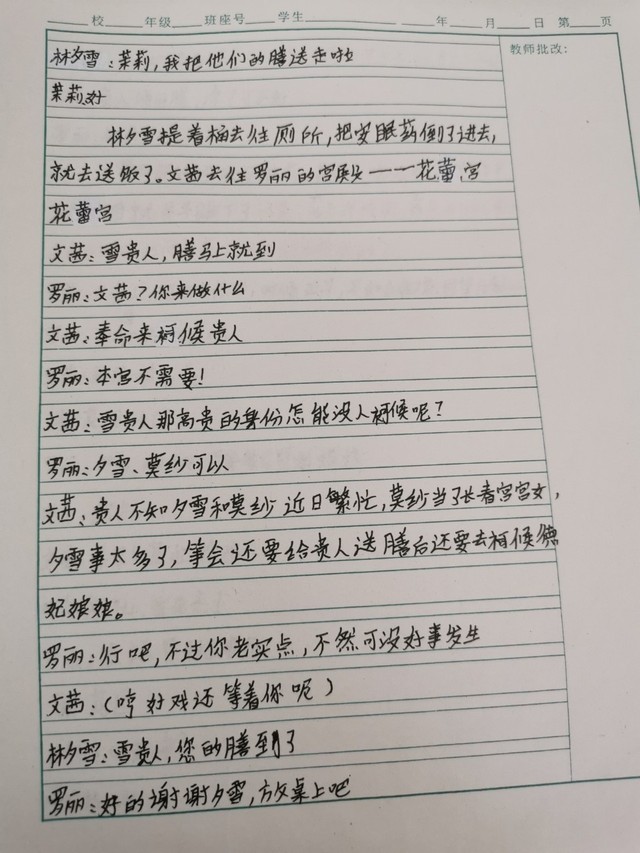 校 年级 班座号 学生 年 月 日 第 页
教师批改：
林夕雪：茉莉，我把他们的膳送走啦
茉莉:好
林夕雪提着桶去往厕所，把安眠药倒了进去，
就去送饭了。文茜去往罗丽的宫殿——花蕾宫
花蕾宫
文茜：雪贵人，膳马上就到
罗丽：文茜？你来做什么
文茜：奉命来伺候贵人
罗丽：本宫不需要！
文茜：雪贵人那高贵的身份怎能没人伺候呢？
罗丽：夕雪、莫纱可以
文茜：贵人不知夕雪和莫纱近日繁忙，莫纱当了长春宫宫女，
夕雪事太多了，等会还要给贵人送膳后还要去伺候德
妃娘娘。
罗丽：行吧，不过你老实点，不然可没好事发生
文茜：（哼 好戏还等着你呢）
林夕雪：雪贵人，您的膳到了
罗丽：好的谢谢夕雪，放桌上吧